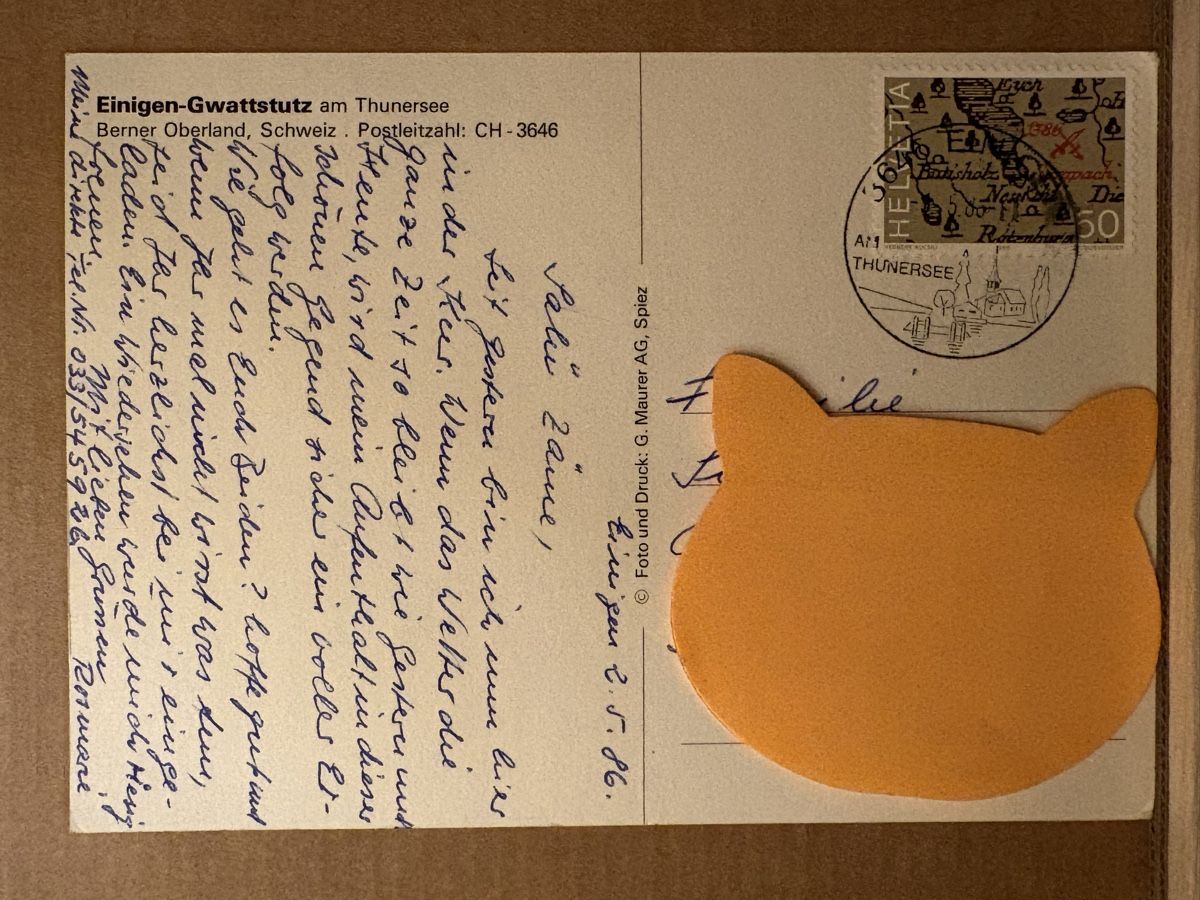 Einigen-Gwattstutz am Thunersee
Berner Oberland, Schweiz . Postleitzahl: CH-3646
Einigen 2.5.86.
Salü Zäme,
Seit gestern bin ich nun hier
in der Kur. Wenn das Wetter die
ganze Zeit so bleibt wie gestern und
Heute, wird mein Aufenthalt in dieser
schönen Gegend sicher ein voller Er-
folg werden.
Wie geht es Euch Beiden? hoffe gut und
wenn Ihr mal nicht wisst was tun,
seid Ihr herzlichst bei mir einge-
laden. Ein Wiedersehen würde mich riesig
freuen. Mit lieben Grüssen Rosmarie
Meine direkte Tel. Nr. 033/545926
© Foto und Druck: G. Maurer AG, Spiez
HELVETIA
Euch
1386
Buttisholz
Rotenburg
50
3646
AM
THUNERSEE